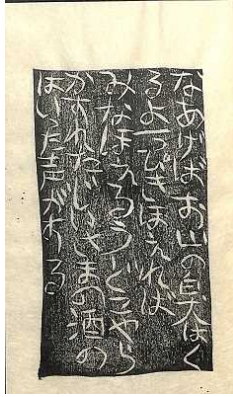 なあげば お山の
るよ一っぴきほえれば
みなほえるうーどこやら
かすれたじいさまの酒の
はいった声がする